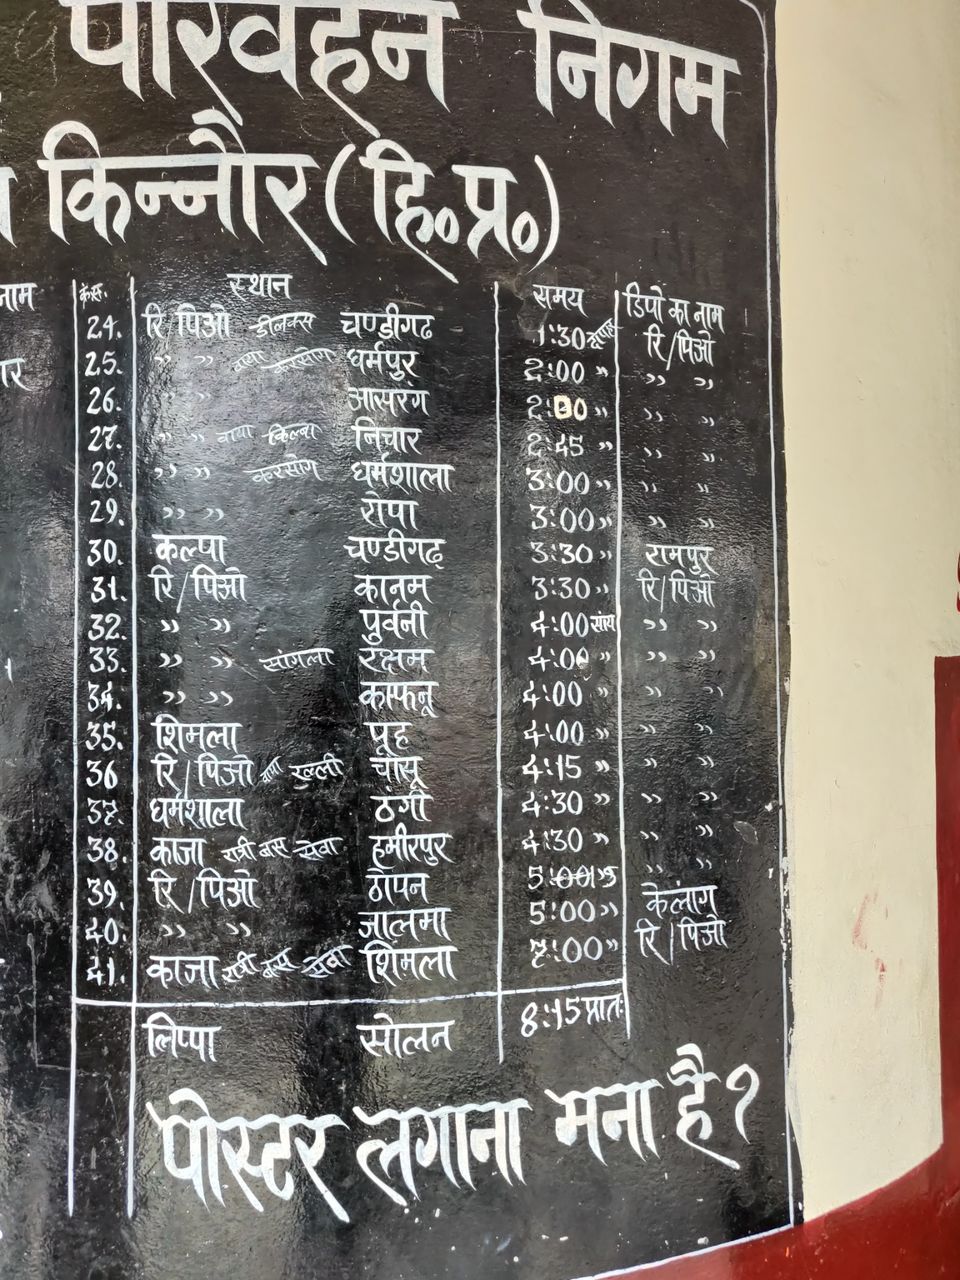 परिवहन निगम
किन्नौर (हि॰प्र॰)
नाम क्र.स. स्थान समय डिपो का नाम
24. रि/पिओ डीलक्स चण्डीगढ 1:30 रि/पिओ
25. " " वाया करसोग धर्मपुर 2:00 " " "
26. " आसरंग 2:00 " " "
27. " " वाया किल्बा निचार 2:45 " " "
28. " " करसोग धर्मशाला 3:00 " " "
29. " " रोपा 3:00 " " "
30. कल्पा चण्डीगढ़ 3:30 " रामपुर
31. रि/पिओ कानम 3:30 " रि/पिओ
32. " " पुर्वनी 4:00 सांय " "
33. " " सांगला रक्षम 4:00 " " "
34. " " काफनू 4:00 " " "
35. शिमला पूह 4:00 " " "
36 रि/पिओ वाया रल्ली चांसू 4:15 " " "
37. धर्मशाला ठंगी 4:30 " " "
38. काजा रात्री बस सेवा हमीरपुर 4:30 " " "
39. रि/पिओ ठांपन 5:00 " " "
40. " " जालमा 5:00 " केलांग
41. काजा रात्री बस सेवा शिमला 7:00 " रि/पिओ
लिप्पा सोलन 8:15 प्रातः
पोस्टर लगाना मना है?